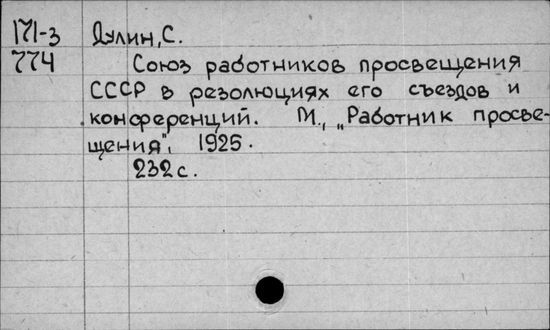 171-3 Дулин, С.
774 Союз работников просвещения
СССР в резолюциях его съездов и
конференций. М., „Работник просве-
щения", 1925.
232 с.